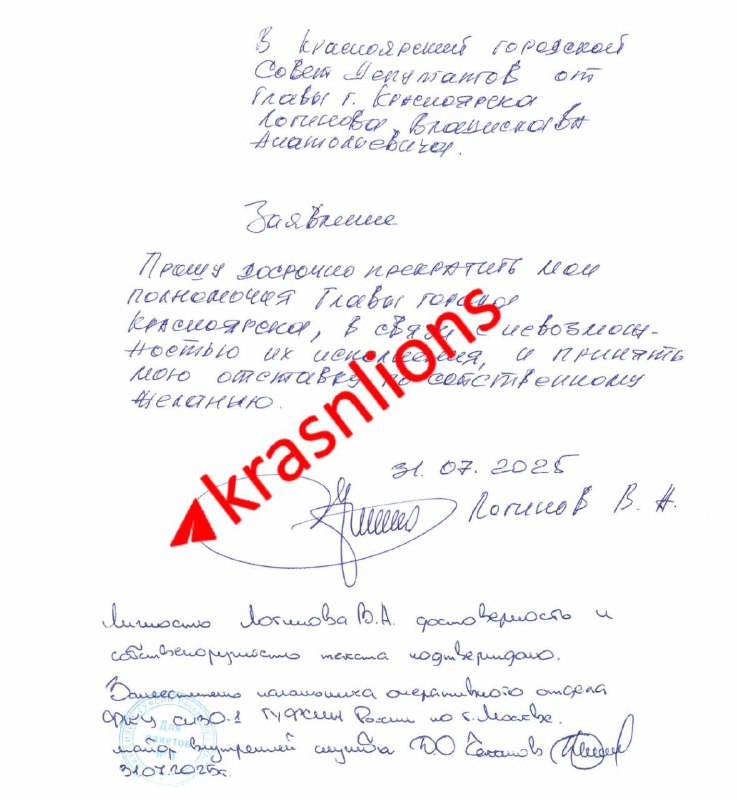 В Красноярский городской
Совет Депутатов от
Главы г. Красноярска
Логинова Владислава
Анатольевича.
Заявление
Прошу досрочно прекратить мои
полномочия Главы города
Красноярска, в связи с невозмож-
ностью их исполнения, и принять
мою отставку по собственному
желанию.
krasnlions
31.07.2025
Логинов В. А.
Личность Логинова В.А. достоверность и
собственоручность текста подтверждаю.
Заместитель начальника оперативного отдела
ФКУ СИЗО-1 ГУФСИН России по г. Москве.
майор внутренней службы Д.О.
31.07.2025г.
Для
пакетов